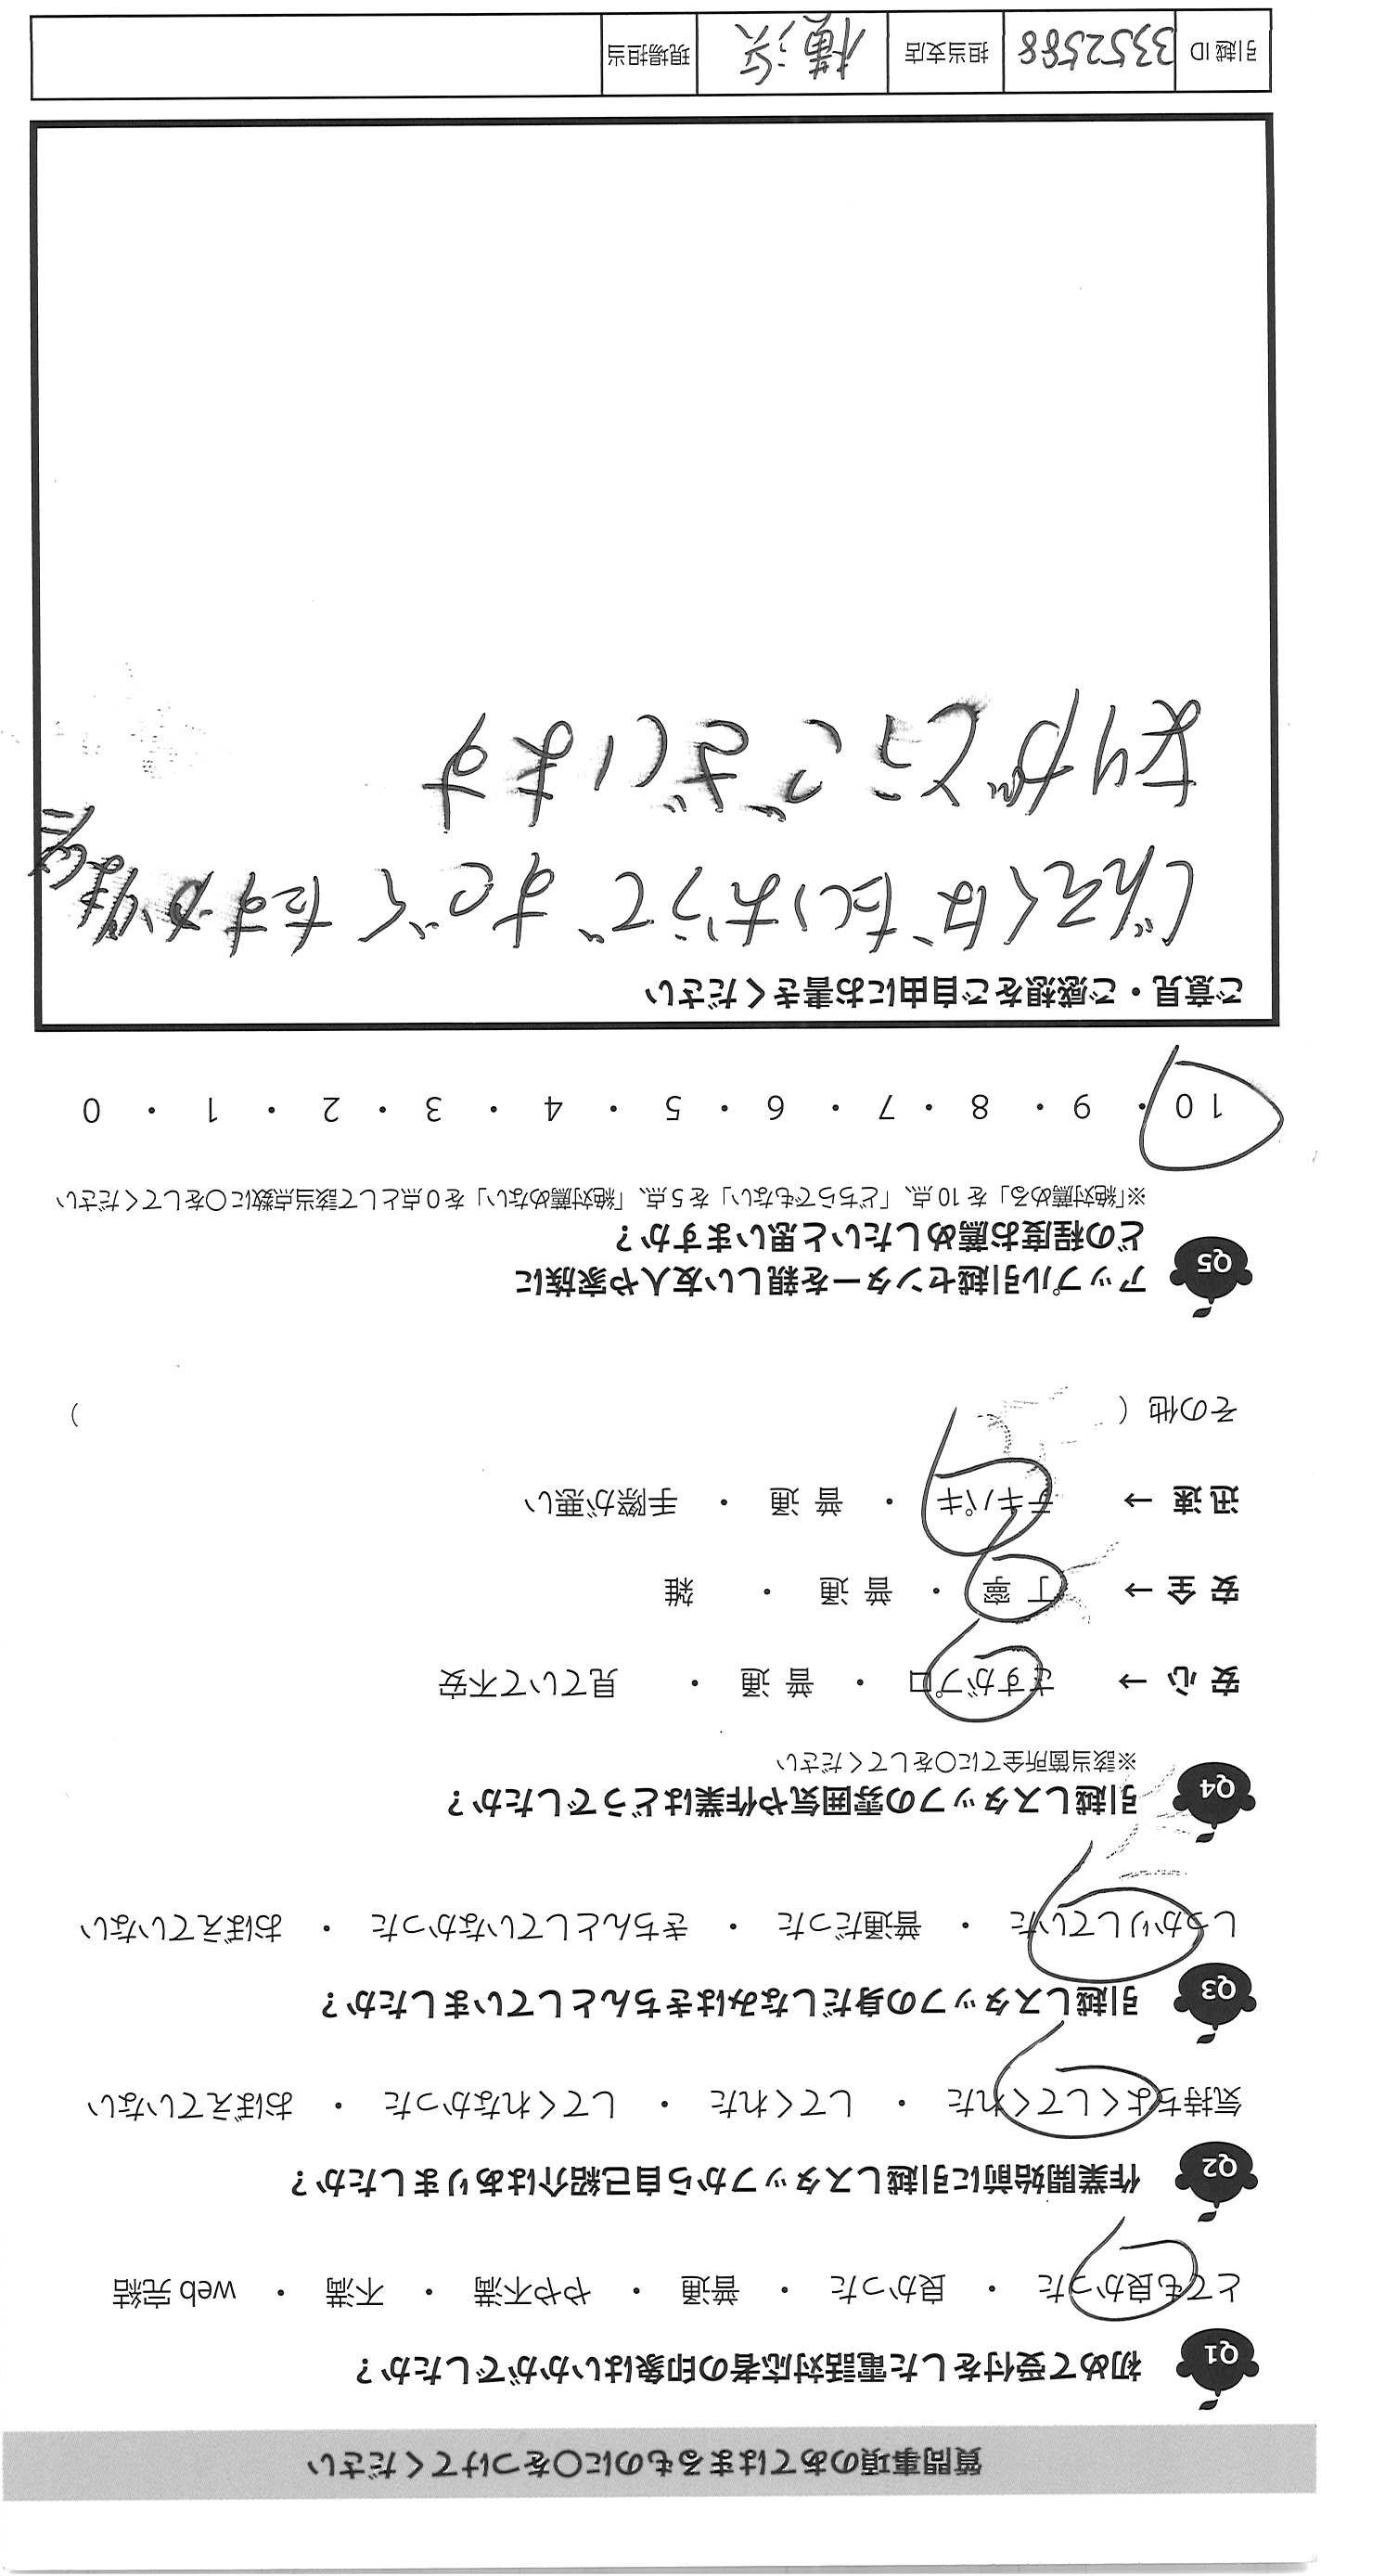 質問事項のあてはまるものに〇をつけてください
Q1 初めて受付をした電話対応者の印象はいかがでしたか？
とても良かった ・ 良かった ・ 普通 ・ やや不満 ・ 不満 ・ web 完結
Q2 作業開始前に引越しスタッフから自己紹介はありましたか？
気持ちよくしてくれた ・ してくれた ・ してくれなかった ・ おぼえていない
Q3 引越しスタッフの身だしなみはきちんとしていましたか？
しっかりしていた ・ 普通だった ・ きちんとしていなかった ・ おぼえていない
Q4 引越しスタッフの雰囲気や作業はどうでしたか？
※該当箇所全てに〇をしてください
安 心 → さすがプロ ・ 普 通 ・ 見ていて不安
安 全 → 丁 寧 ・ 普 通 ・ 雑
迅 速 → テキパキ ・ 普 通 ・ 手際が悪い
その他（ ）
Q5 アップル引越センターを親しい友人や家族に
どの程度お薦めしたいと思いますか？
※「絶対薦める」を 10 点、「どちらでもない」を 5 点、「絶対薦めない」を 0 点として該当点数に〇をしてください
10 ・ 9 ・ 8 ・ 7 ・ 6 ・ 5 ・ 4 ・ 3 ・ 2 ・ 1 ・ 0
ご意見・ご感想をご自由にお書きください
じんそくなたいおうで すごく たすかりました
ありがとうございます
引越 ID 3352588 担当支店 横浜 現場担当